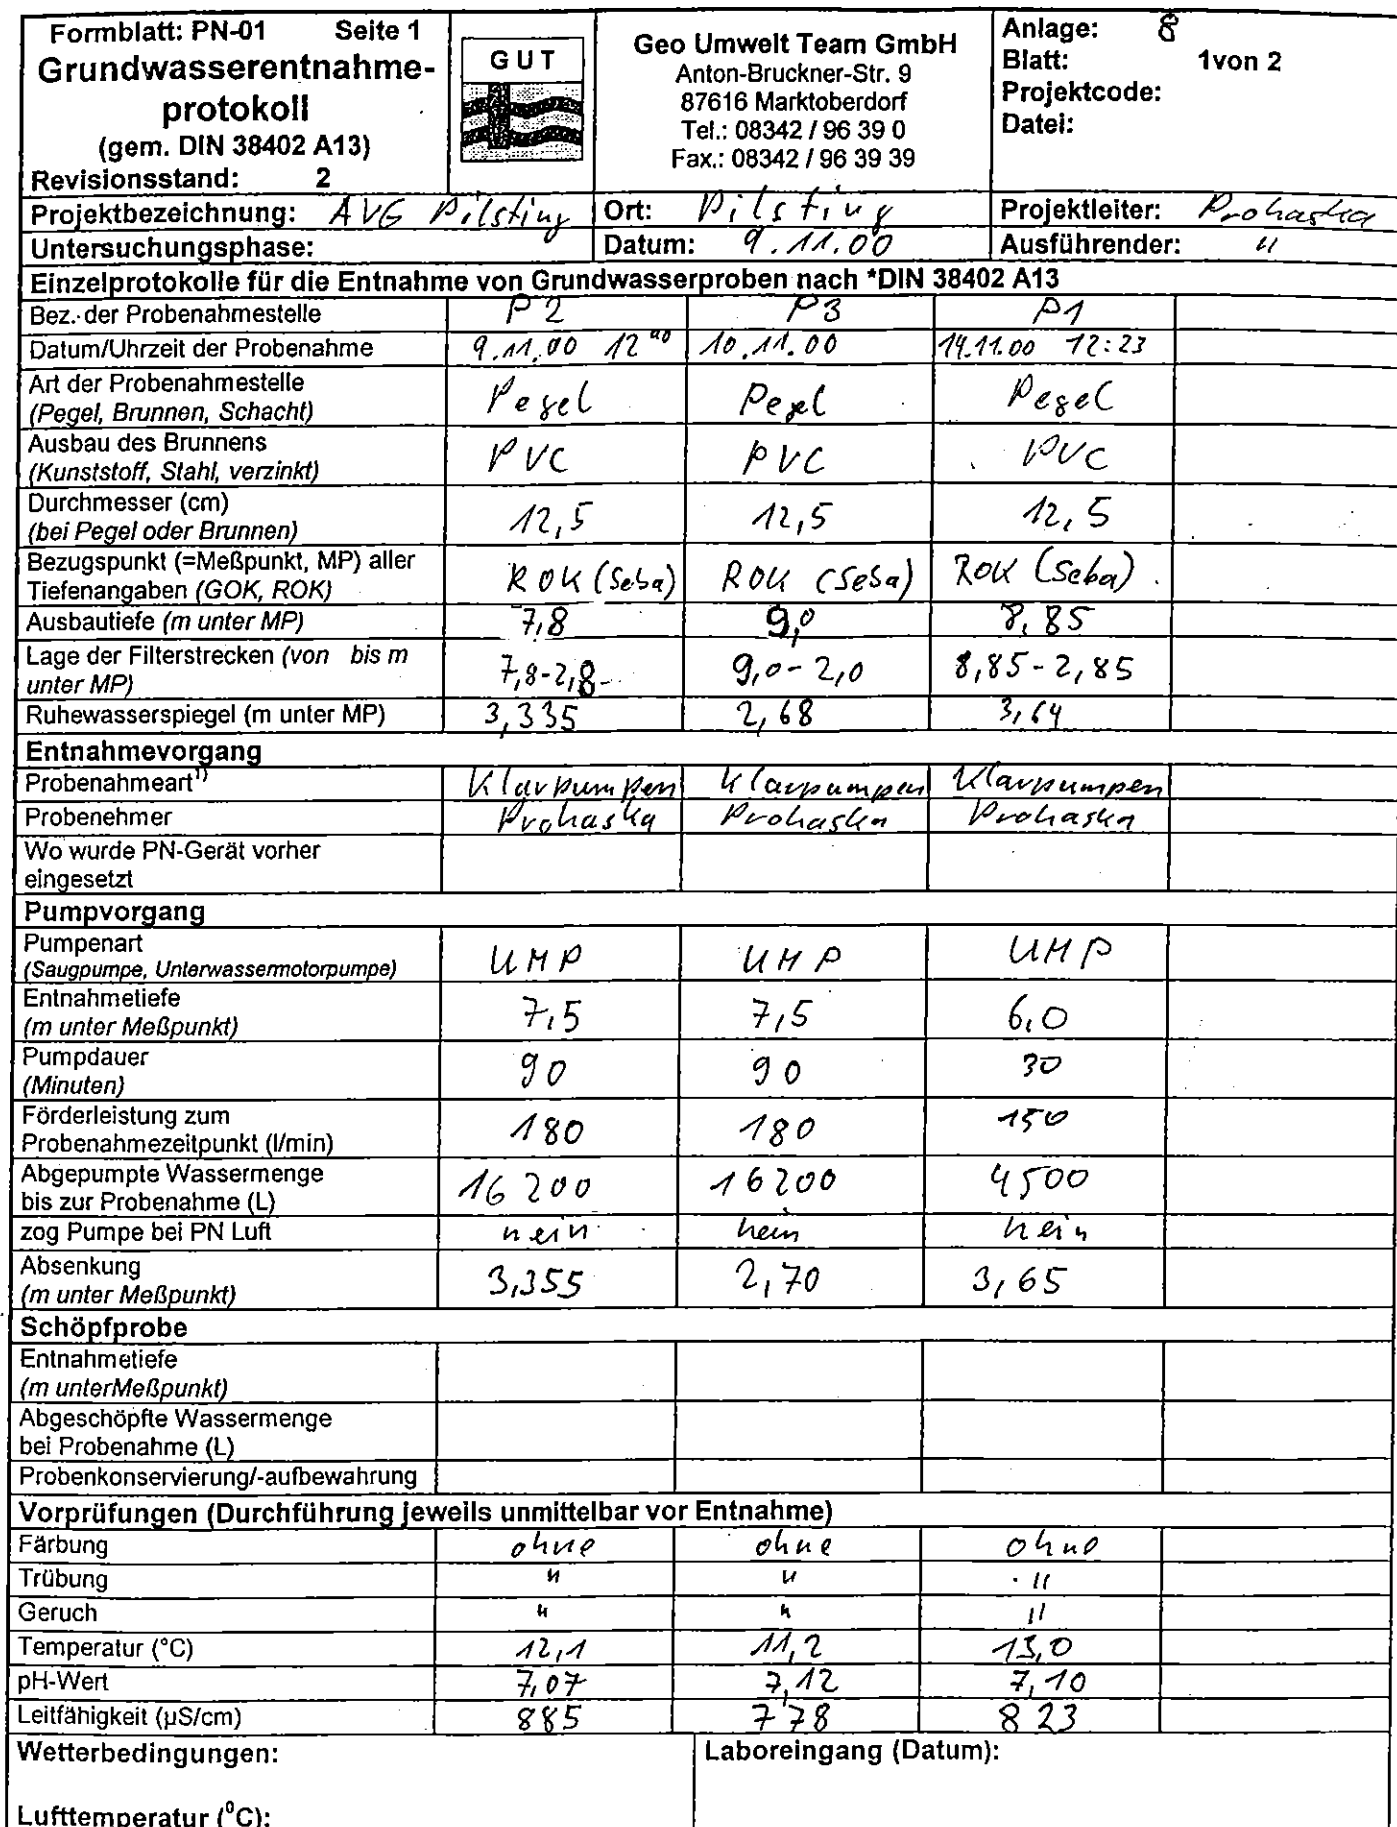 Formblatt: PN-01 Seite 1
Grundwasserentnahme-
protokoll
(gem. DIN 38402 A13)
Revisionsstand: 2
GUT
Geo Umwelt Team GmbH
Anton-Bruckner-Str. 9
87616 Marktoberdorf
Tel.: 08342 / 96 39 0
Fax.: 08342 / 96 39 39
Anlage: 8
Blatt: 1von 2
Projektcode:
Datei:
Projektbezeichnung: AVG Pilsting Ort: Pilsting Projektleiter: Prohaska
Untersuchungsphase: Datum: 9.11.00 Ausführender: "
Einzelprotokolle für die Entnahme von Grundwasserproben nach *DIN 38402 A13
Bez. der Probenahmestelle P2 P3 P1
Datum/Uhrzeit der Probenahme 9.11.00 12 10.11.00 14.11.00 12:23
Art der Probenahmestelle
(Pegel, Brunnen, Schacht) Pegel Pegel Pegel
Ausbau des Brunnens
(Kunststoff, Stahl, verzinkt) PVC PVC PVC
Durchmesser (cm)
(bei Pegel oder Brunnen) 12,5 12,5 12,5
Bezugspunkt (=Meßpunkt, MP) aller
Tiefenangaben (GOK, ROK) ROK (Seba) ROK (Seba) ROK (Seba)
Ausbautiefe (m unter MP) 7,8 9,0 8,85
Lage der Filterstrecken (von bis m
unter MP) 7,8-2,8 9,0-2,0 8,85-2,85
Ruhewasserspiegel (m unter MP) 3,335 2,68 3,64
Entnahmevorgang
Probenahmeart1) Klarpumpen Klarpumpen Klarpumpen
Probenehmer Prohaska Prohaska Prohaska
Wo wurde PN-Gerät vorher
eingesetzt
Pumpvorgang
Pumpenart
(Saugpumpe, Unterwassermotorpumpe) UMP UMP UMP
Entnahmetiefe
(m unter Meßpunkt) 7,5 7,5 6,0
Pumpdauer
(Minuten) 90 90 30
Förderleistung zum
Probenahmezeitpunkt (l/min) 180 180 150
Abgepumpte Wassermenge
bis zur Probenahme (L) 16 200 16200 4500
zog Pumpe bei PN Luft nein nein nein
Absenkung
(m unter Meßpunkt) 3,355 2,70 3,65
Schöpfprobe
Entnahmetiefe
(m unterMeßpunkt)
Abgeschöpfte Wassermenge
bei Probenahme (L)
Probenkonservierung/-aufbewahrung
Vorprüfungen (Durchführung jeweils unmittelbar vor Entnahme)
Färbung ohne ohne ohne
Trübung " " "
Geruch " " "
Temperatur (°C) 12,1 11,2 13,0
pH-Wert 7,07 7,12 7,10
Leitfähigkeit (µS/cm) 885 778 823
Wetterbedingungen: Laboreingang (Datum):
Lufttemperatur (⁰C):